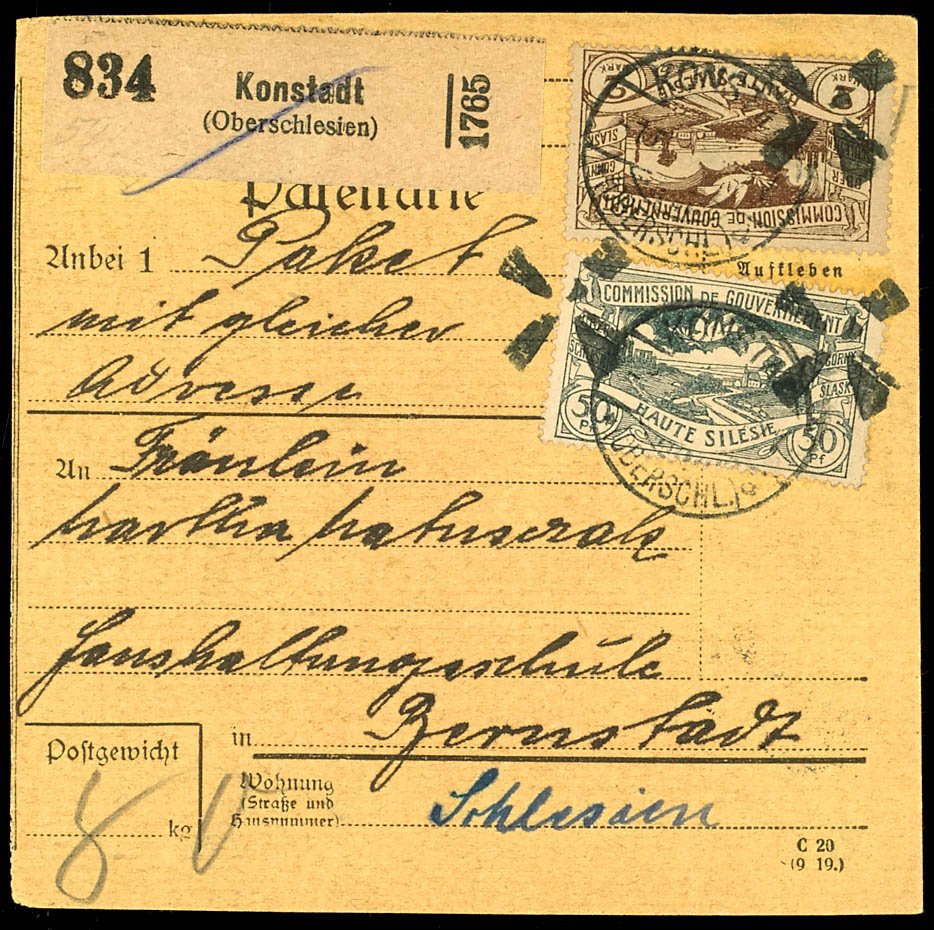 834
Konstadt
(Oberschlesien)
1765
Paketkarte
Anbei 1 Paket
mit gleicher
Adresse
2 MARK
COMMISSION DE GOUVERNEMENT
HAUTE SILÉSIE
Aufkleben
COMMISSION DE GOUVERNEMENT
GÓRNY
ŚLĄSK
50 Pf
HAUTE SILÉSIE
50 Pf
(OBERSCHL.)
An Fräulein
Martha
Haushaltungsschule
in Bernstadt
Postgewicht
8 kg
Wohnung
(Straße und
Hausnummer)
Schlesien
C 20
(9 19.)